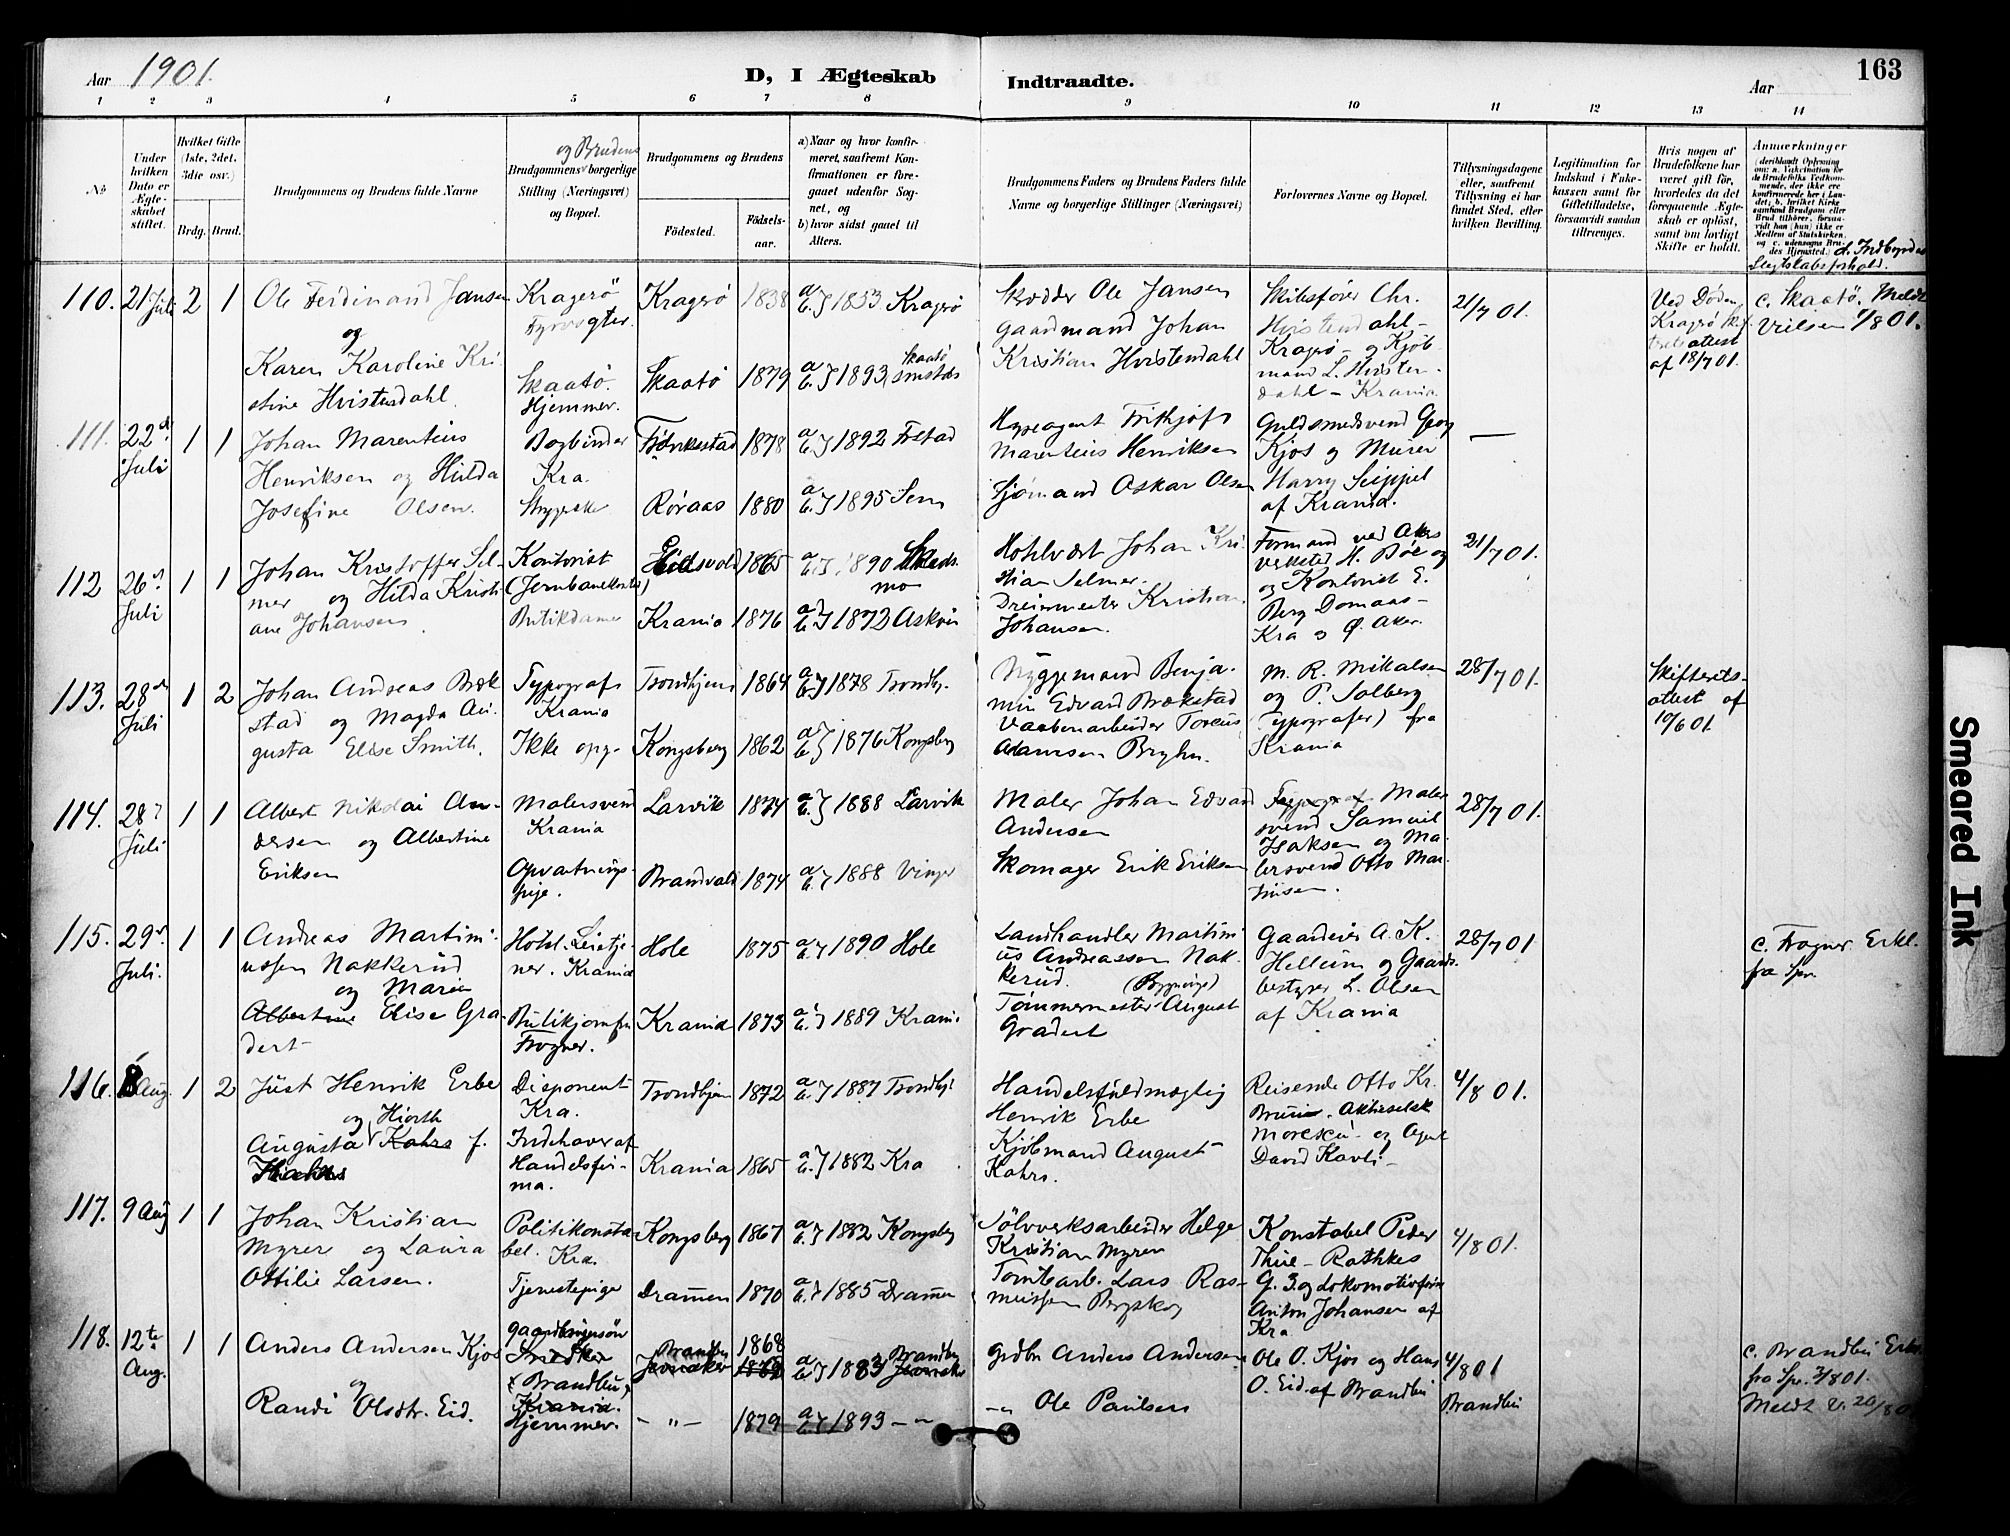 Aar 1901.
D, I Ægteskab Indtraadte.
Aar
163
1 2 3 4 5 6 7 8 9 10 11 12 13 14
No
Under hvilken Dato er Ægteskabet stiftet.
Hvilket Gifte (1ste, 2det, 3die osv.)
Brdg. Brud.
Brudgommens og Brudens fulde Navne
og Brudens
Brudgommens borgerlige Stilling (Næringsvei) og Bopæl.
Brudgommens og Brudens
Fødested.
Fødselsaar.
a) Naar og hvor konfirmeret, saafremt Konfirmationen er foregaaet udenfor Sognet, og
b) hvor sidst gaaet til Alters.
Brudgommens Faders og Brudens Faders fulde Navne og borgerlige Stillinger (Næringsvei)
Forlovernes Navne og Bopæl.
Tillysningsdagene eller, saafremt Tillysning ei har fundet Sted, efter hvilken Bevilling.
Legitimation for Indskud i Enkekassen samt for Giftetilladelse, forsaavidt saadan tiltrænges.
Hvis nogen af Brudefolkene har været gift før, hvorledes da det foregaaende Ægteskab er opløst, samt om lovligt Skifte er holdt.
Anmærkninger (deriblandt Oplysning om: a. Vaccination for de Brudefolks Vedkommende, der ikke ere konfirmerede her i Landet; b. hvilket Kirkesamfund Brudgom eller Brud tilhører, forsaavidt han (hun) ikke er Medlem af Statskirken, og c. udensogns Brudes Hjemsted.) d. Indbyrdes Slegtskabsforhold.
110. 21 Juli 2 1 Ole Ferdinand Jansen og Karen Karoline Kristine Hvistendahl
Kragerö Fyrvogter. Skaatö. Hjemmev.
Kragerö 1838 a b } 1853 Kragerö
Skaatö 1879 a b } 1893 Skaatö
Skrædder Ole Jansen
Gaardmand Johan Kristian Hvistendahl
Skibsfører Chr. Hvistendahl – Kragerø – og Kjöbmand L. Hvistendahl – Krania.
21/7 01.
Ved Døden, Kragrø Skifteretsattest af 18/7 01.
c. Skaatö. Meldt 1/8 01.
111. 22de Juli 1 1 Johan Marentius Henriksen og Hilda Josefine Olsen.
Bogbinder Kra.
Fredrikstad 1878 a b } 1892 Frstad
Røraas 1880 a b } 1895 Sem
Marentius Henriksen
Sjömand Oskar Olsen
Guldsmedsvend Georg Kjos og Murer Harry Seippel af Krania.
—
112 26de Juli 1 1 Johan Kristoffer Selmer og Hilda Kristiane Johansen
Kontorist (Jernbanekontor) Butikdame
Eidsvold 1865 a b } 1890 Skedsmo
Krania 1876 a b } 1872 Askim
Johan Kristian Selmer.
Dreiermester Kristian Johansen.
Formand ved Akers verksted H. Böe og og Kontorist E. Berg Domaas – Kra og Ø. Aker.
21/7 01.
113. 28de Juli 1 2 Johan Andreas Brækstad og Magda Augusta Elise Smith.
Typograf Krania Ikke opg.
Trondhjem 1864 a b } 1878 Trondhj.
Kongsberg 1862 a b } 1876 Kongsberg
Bryggemand Benjamin Edvard Brækstad
Vaabenarbeider Adamsen Bryhn.
M. R. Mikalsen og P. Solberg (Typografer) fra Krania
28/7 01.
Skifteretsattest af 10/6 01.
114. 28de Juli 1 1 Albert Nikolai Andersen og Albertine Eriksen
Malersvend Krania Opvartningspige.
Larvik 1874 a b } 1888 Larvik
Brandvold 1874 a b } 1888 Vinger
Maler Johan Edvard Andersen
Skomager Erik Eriksen
Typograf Malersvend Samuel Isaksen og Malersvend Otto Martinsen.
28/7 01.
115. 29de Juli. 1 1 Andreas Martiniussen Nakkerud og Maria Albertine Elise Gradert
Hotel-Leietjener. Krania Butikjomfru Frogner.
Hole 1875 a b } 1890 Hole
Krania 1873 a b } 1889 Krani.
Landhandler Martinius Andreassen Nakkerud. (Bygnings)
Tømmermester August Gradert
Gaardeier A. K. Helleim og Gaardsbestyrer L. Olsen af Krania
28/7 01
c. Frogner. Erkl. fra Spr.
116. 8 Aug. 1 2 Just Henrik Erbe og Hiorth Augusta Kahrs f.
Disponent Kra. Indehaver af Handelsfirma.
Trondhjem 1872 a b } 1887 Trondhj.
Krania 1865 a b } 1882 Kra
Handelsfuldmægtig Henrik Erbe
Kjöbmand August Kahrs.
Reisende Otto Kr. og Agent David Kavli –
4/8 01.
117. 9 Aug 1 1 Johan Kristian Myrer og Laura Ottilie Larsen.
Politikonstabel. Kra. Tjenestepige
Kongsberg 1867 a b } 1882 Kongsberg
Drammen 1870 a b } 1885 Drammen
Sølvverksarbeider Helge Kristian Myren
Tomtearb. Lars Rasmussen Bergskog
Konstabel Peder Thue – Rathkes G. 3 og Lokomotivfører Anton Johansen af Kra
4/8 01.
118. 12te Aug. 1 1 Anders Andersen Kjos og Randi Olsdtr. Eid.
Gaardbrugersön Snedker Brandbu Krania. Hjemmev.
Brandbu Jevnaker 1868 a b } 1883 Brandbu Jevnaker
– „ – 1879 a b } 1893 – „
Grdbr Anders Andersen
– „ Ole Paulsen
Ole O. Kjos og Hans O. Eid. af Brandbu
4/8 01 Brandbu
c. Brandbu Erkl. fra Spr. 7/8 01. Meldt V. 20/8 01
Smeared Ink